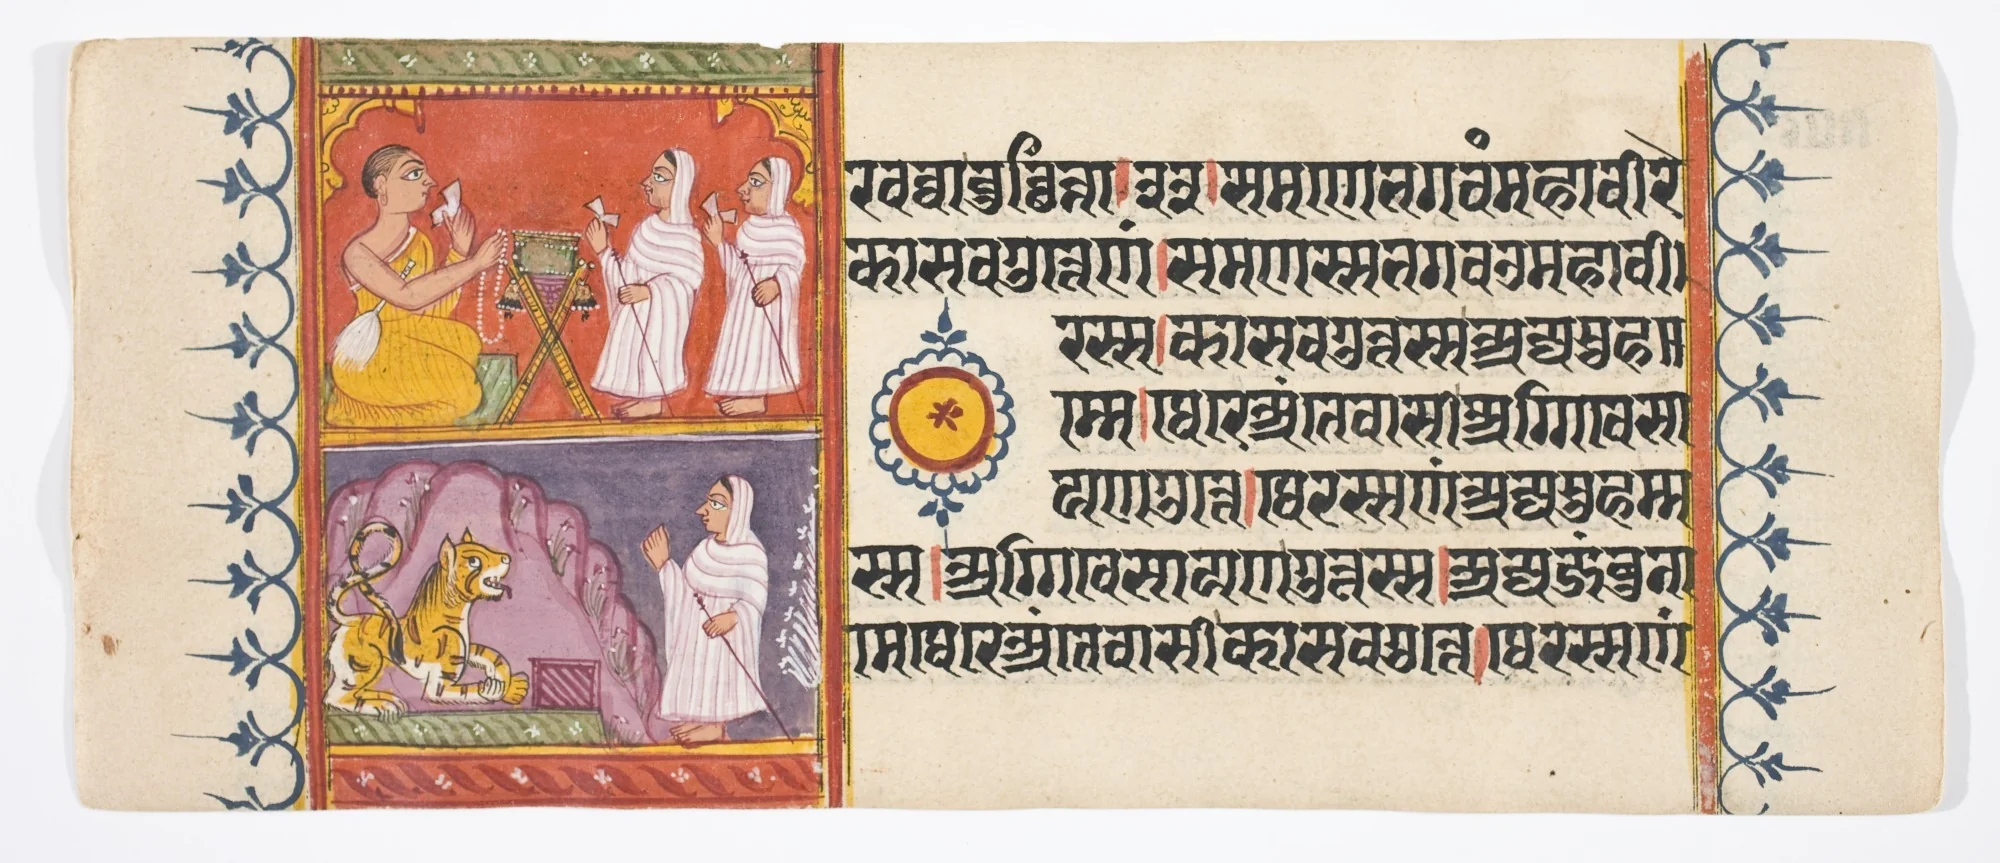 रवच्चावुच्छिन्ना।२२।समणेभगवंमहावीरे
कासवगुत्तेणं।समणस्सभगवउमहावी
रस्स।कासवगुत्तस्सअज्जसुह
म्मे।थेरेअंतेवासीअग्गिवेसा
यणगुत्ते।थेरस्सणंअज्जसुहम्म
स्स।अग्गिवेसायणगुत्तस्स।अज्जजंबुना
मेथेरेअंतेवासीकासवगुत्ते।थेरस्सणं